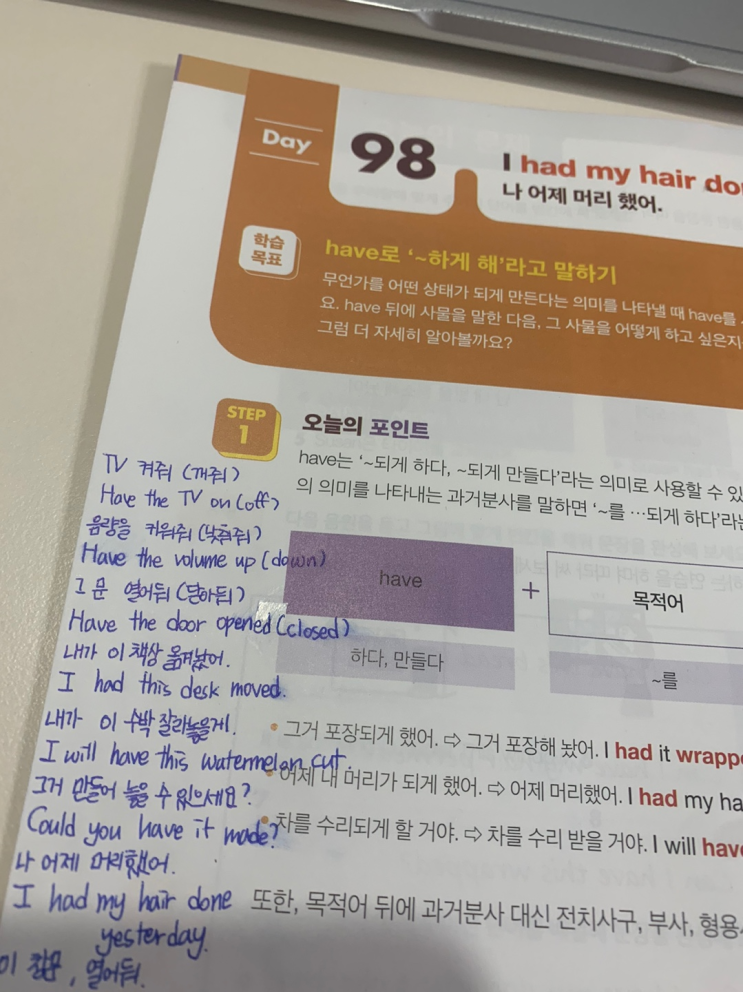 Day
98
I had my hair do
나 어제 머리 했어.
학습
목표
have로 '~하게 해'라고 말하기
무언가를 어떤 상태가 되게 만든다는 의미를 나타낼 때 have를
요. have 뒤에 사물을 말한 다음, 그 사물을 어떻게 하고 싶은지
그럼 더 자세히 알아볼까요?
STEP
1
오늘의 포인트
have는 '~되게 하다, ~되게 만들다'라는 의미로 사용할 수 있
의 의미를 나타내는 과거분사를 말하면 '~를 …되게 하다'라는
have
+
목적어
하다, 만들다
~를
• 그거 포장되게 했어. ⇨ 그거 포장해 놨어. I had it wrapp
• 어제 내 머리가 되게 했어. ⇨ 어제 머리했어. I had my ha
• 차를 수리되게 할 거야. ⇨ 차를 수리 받을 거야. I will have
또한, 목적어 뒤에 과거분사 대신 전치사구, 부사, 형용
TV 켜줘 (꺼줘)
Have the TV on (off)
음량을 키워줘 (낮춰줘)
Have the volume up (down)
그 문 열어둬 (닫아둬)
Have the door opened (closed)
내가 이 책상 옮겨놨어.
I had this desk moved.
내가 이 수박 잘라놓을게.
I will have this watermelon cut.
그거 만들어 놓을 수 있으세요?
Could you have it made?
나 어제 머리했어.
I had my hair done
yesterday.
이 창문, 열어둬.